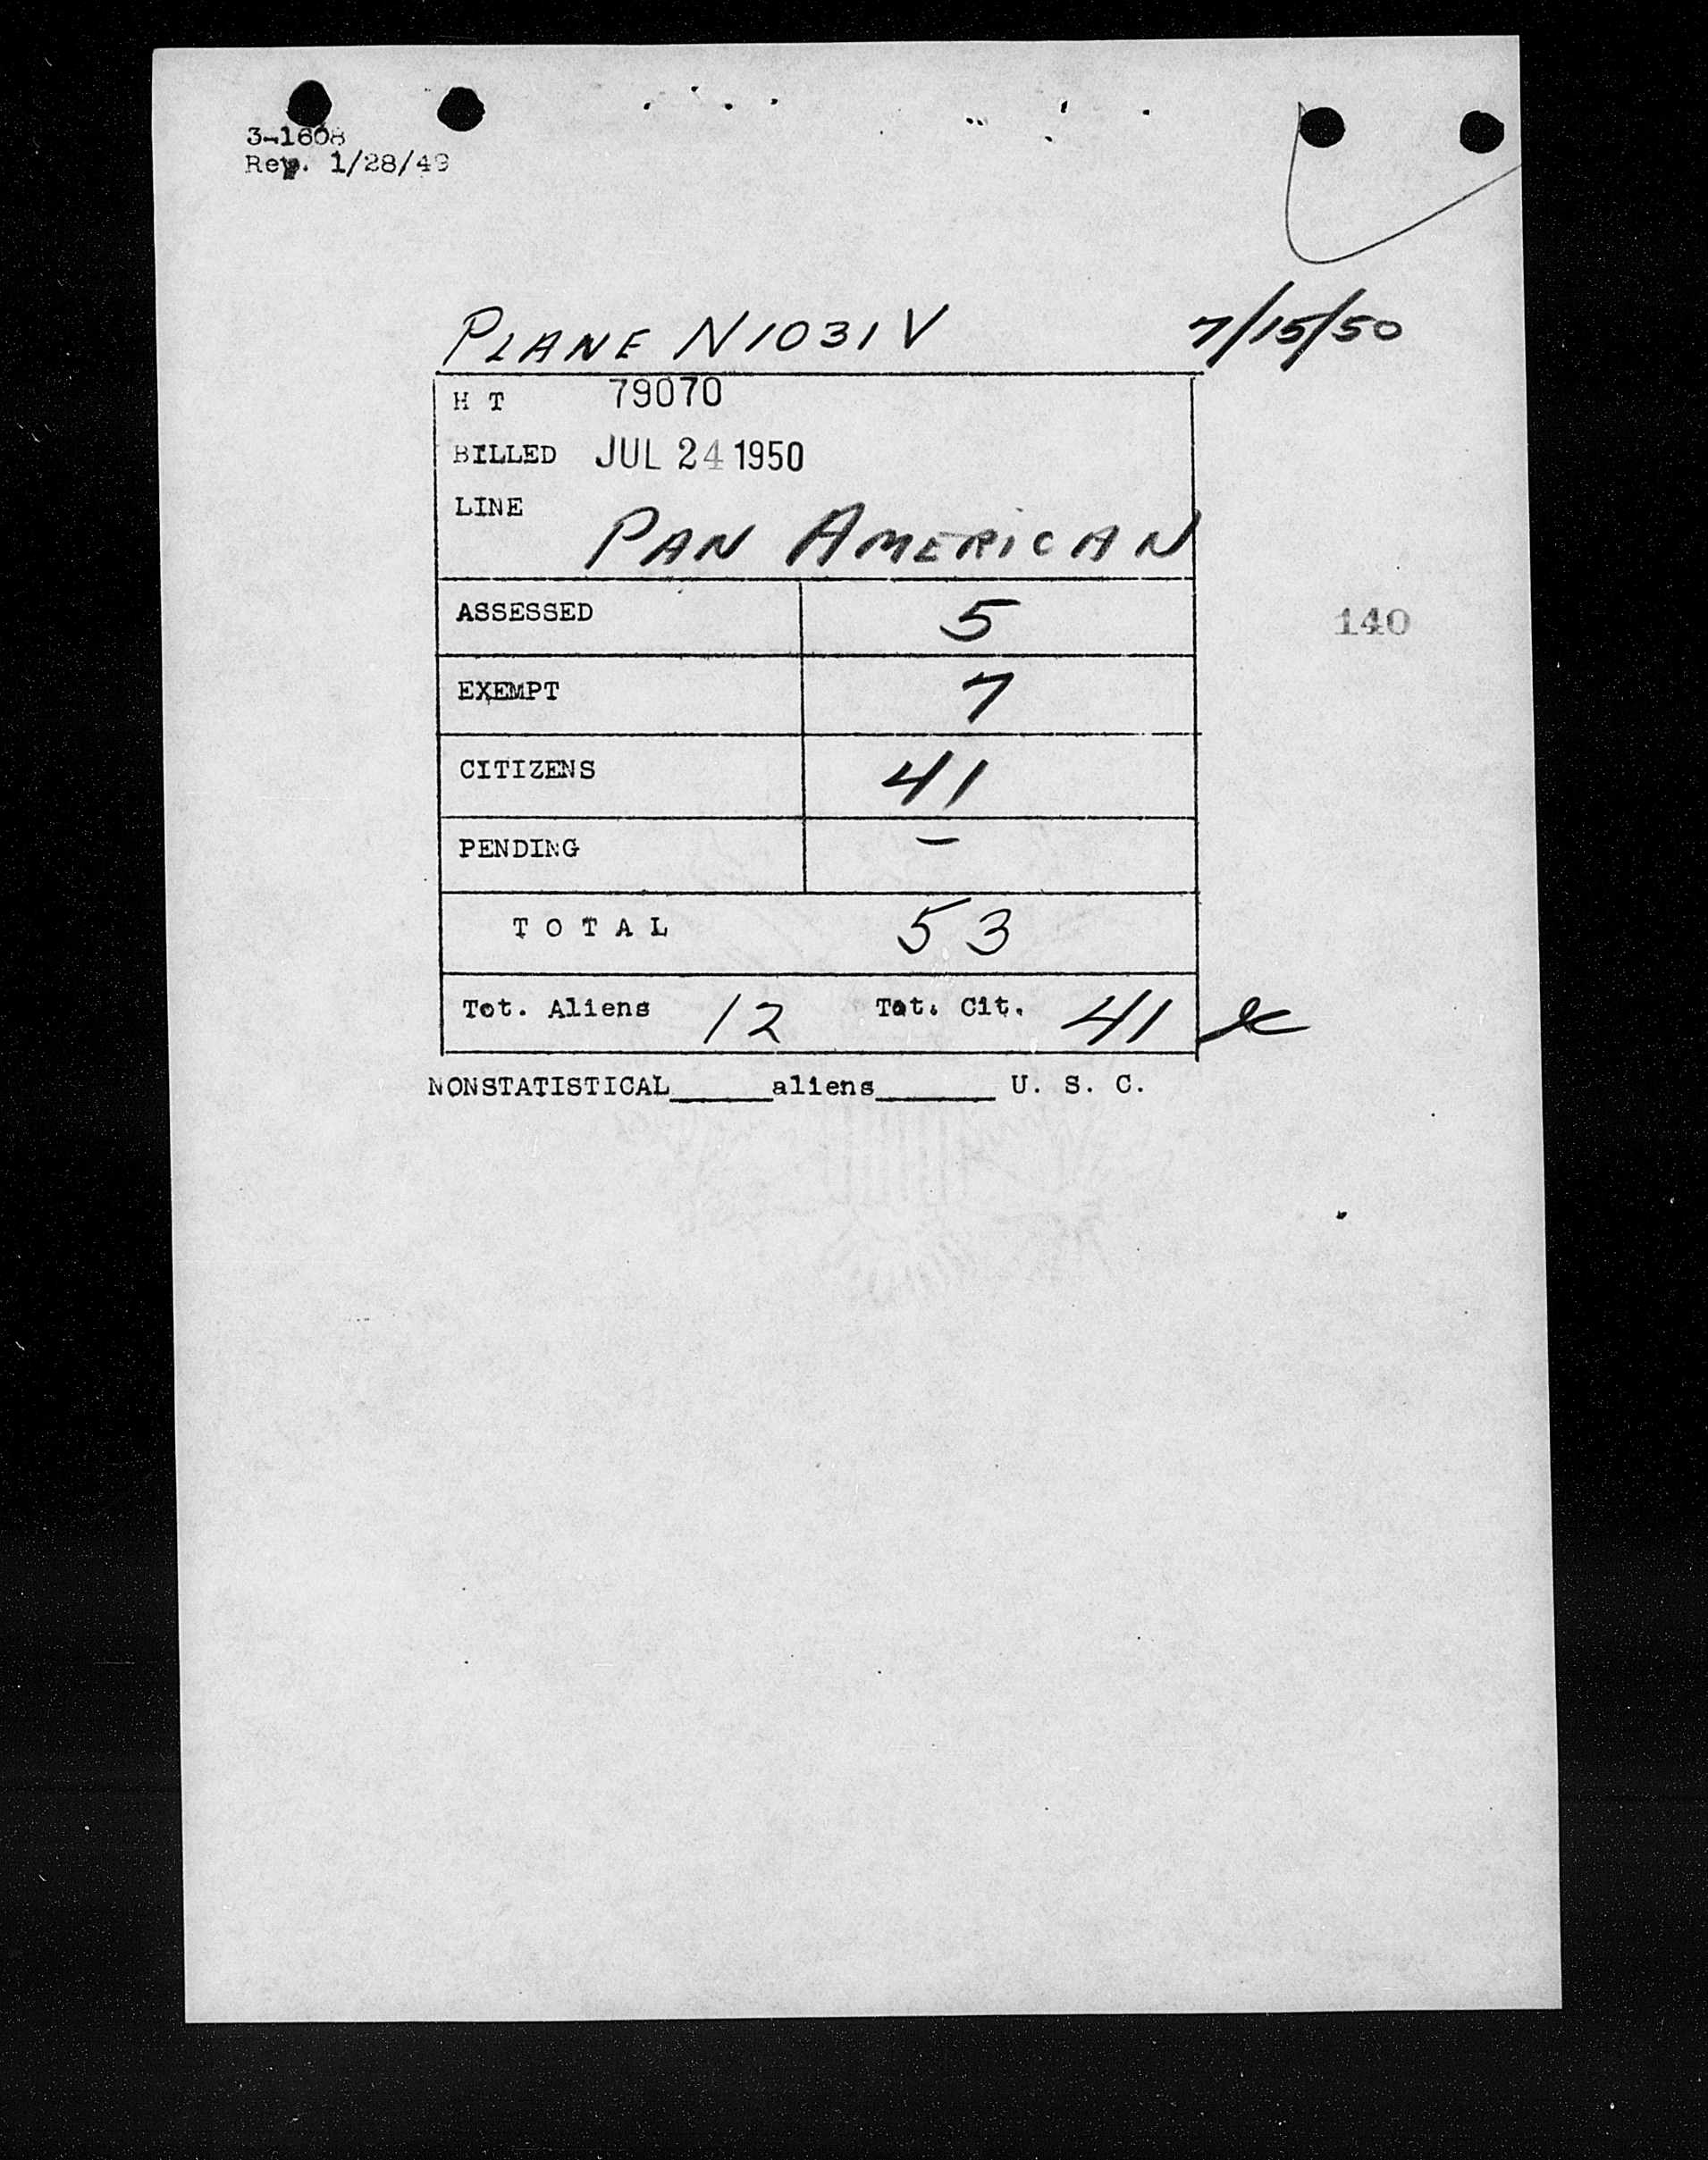 3-1608
Rev. 1/28/49
PLANE N1031V 7/15/50
H T 79070
BILLED JUL 24 1950
LINE
PAN AMERICAN
ASSESSED 5
140
EXEMPT 7
CITIZENS 41
PENDING –
TOTAL 53
Tot. Aliens 12 Tot. Cit. 41
NONSTATISTICAL_____aliens______ U. S. C.